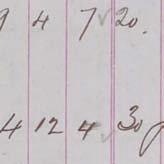 9 4 7 20.
4 12 4 30